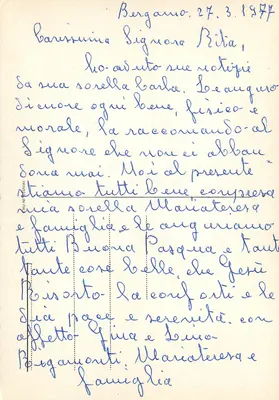 Bergamo. 27. 3. 1977
Carissima Signora Rita,
ho avuto sue notizie
da sua sorella Carla. Le auguro
di cuore ogni bene, fisico e
morale, la raccomando al
Signore che non ci abban
dona mai. Noi al presente
stiamo tutti bene compresa
mia sorella Mariateresa
e famiglia e le auguriamo
tutti Buona Pasqua e tante
tante cose belle, che Gesù
Risorto la conforti e le
dia pace e serenità. con
affetto Gina e Lino
Bergamonti. Mariateresa e
famiglia